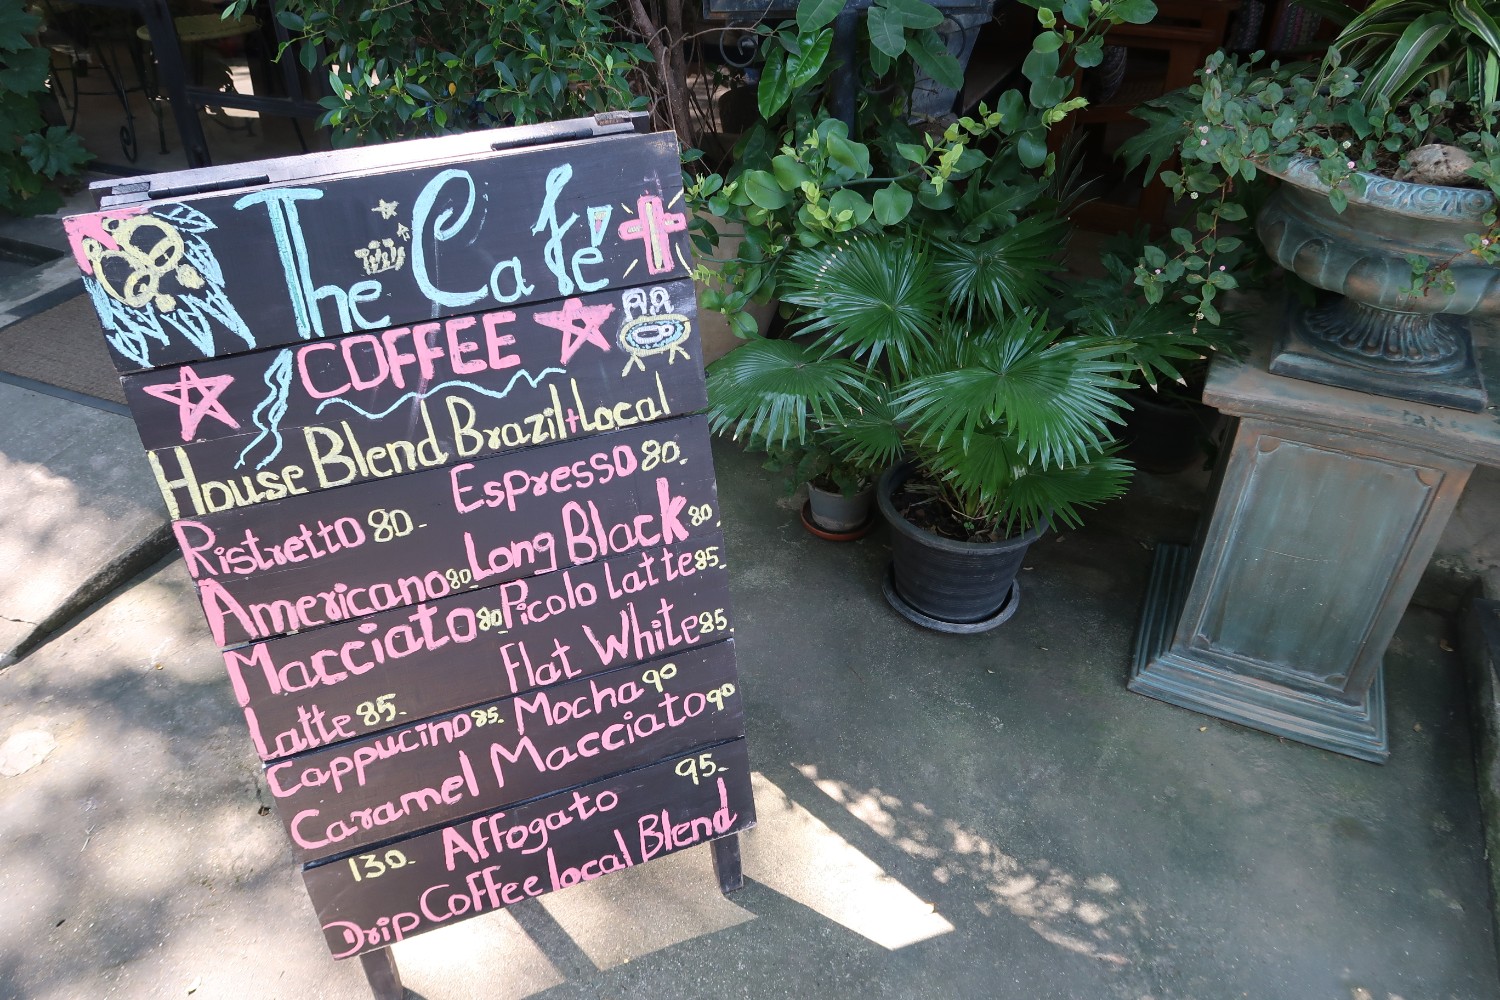 The Café
COFFEE
House Blend Brazil+Local
Espresso 80.
Ristretto 80-
Long Black 80.
Americano 80.
Picolo Latte 85.
Macciato 80
Flat White 85.
Latte 85.
Mocha 90
Cappucino 85.
Caramel Macciato 90
95.
Affogato
130.
Drip Coffee local Blend